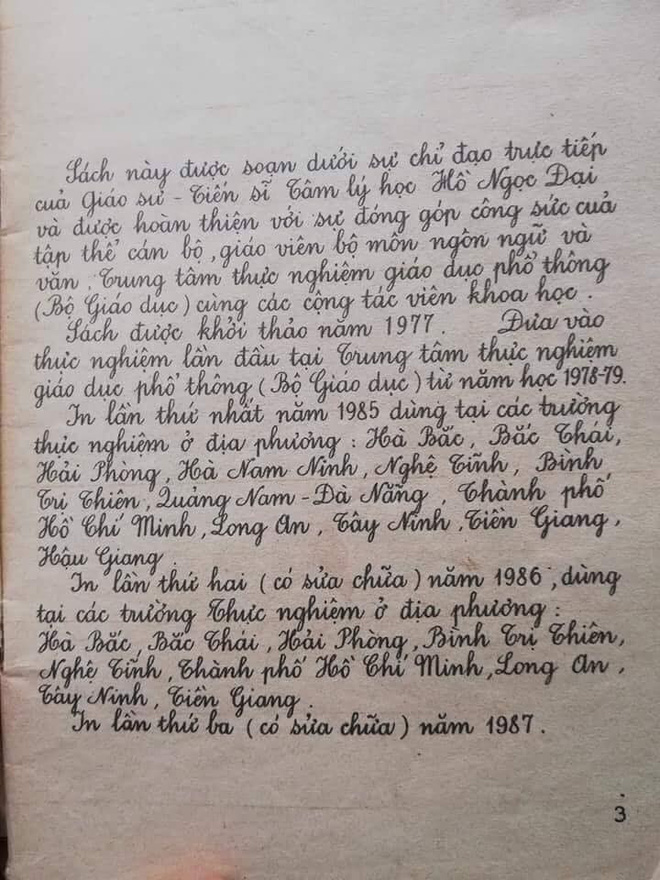 Sách này được soạn dưới sự chỉ đạo trực tiếp
cuả Giáo sư - Tiến sĩ Tâm lý học Hồ Ngọc Đại
và được hoàn thiện với sự đóng góp công sức cuả
tập thể cán bộ, giáo viên bộ môn ngôn ngữ và
văn. Trung tâm thực nghiệm giáo dục phổ thông
(Bộ Giáo dục) cùng các cộng tác viên khoa học.
Sách được khởi thảo năm 1977. Đưa vào
thực nghiệm lần đầu tại Trung tâm thực nghiệm
giáo dục phổ thông (Bộ Giáo dục) từ năm học 1978-79.
In lần thứ nhất năm 1985 dùng tại các trường
thực nghiệm ở địa phương: Hà Bắc, Bắc Thái,
Hải Phòng, Hà Nam Ninh, Nghệ Tĩnh, Bình
Trị Thiên, Quảng Nam-Đà Nẵng, Thành phố
Hồ Chí Minh, Long An, Tây Ninh, Tiền Giang,
Hậu Giang.
In lần thứ hai (có sửa chữa) năm 1986, dùng
tại các trường Thực nghiệm ở địa phương:
Hà Bắc, Bắc Thái, Hải Phòng, Bình Trị Thiên,
Nghệ Tĩnh, Thành phố Hồ Chí Minh, Long An,
Tây Ninh, Tiền Giang.
In lần thứ ba (có sửa chữa) năm 1987.
3